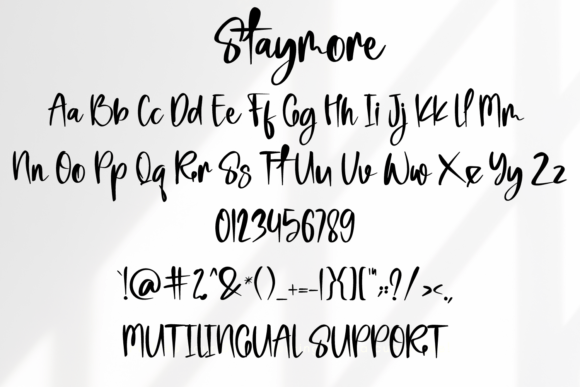 Staymore
Aa Bb Cc Dd Ee Ff Gg Hh Ii Jj Kk Ll Mm
Nn Oo Pp Qq Rr Ss Tt Uu Vv Ww Xx Yy Zz
0123456789
`!@#2^&*()_+=-|}{][""';:?/><.,
MUTILINGUAL SUPPORT